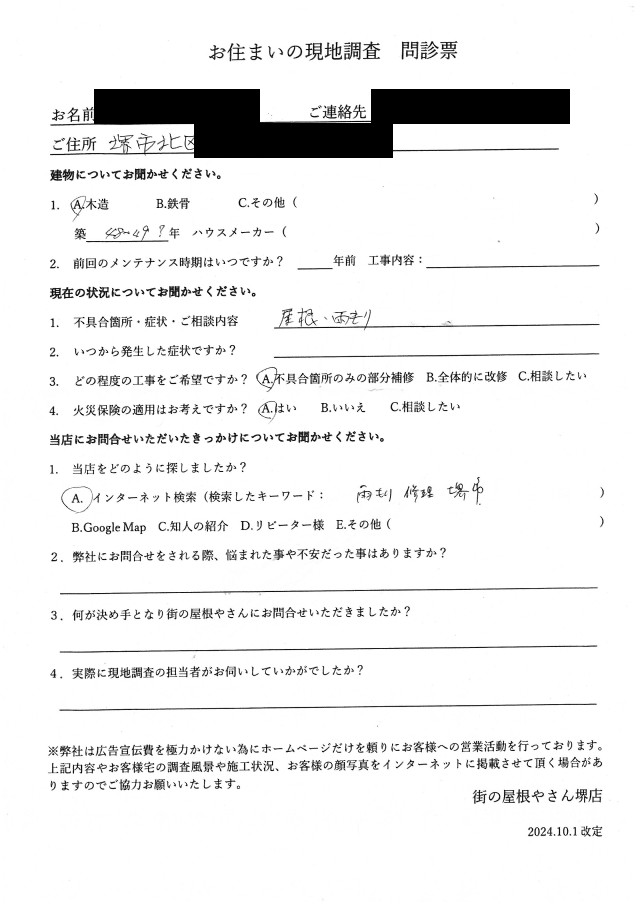 お住まいの現地調査　問診票
お名前　ご連絡先
ご住所　堺市北区
建物についてお聞かせください。
1.　A.木造　B.鉄骨　C.その他（　）
築 48~49？年　ハウスメーカー（　）
2.　前回のメンテナンス時期はいつですか？　＿＿年前　工事内容：
現在の状況についてお聞かせください。
1.　不具合箇所・症状・ご相談内容　屋根・雨もり
2.　いつから発生した症状ですか？
3.　どの程度の工事をご希望ですか？　A.不具合箇所のみの部分補修　B.全体的に改修　C.相談したい
4.　火災保険の適用はお考えですか？　A.はい　B.いいえ　C.相談したい
当店にお問合せいただいたきっかけについてお聞かせください。
1.　当店をどのように探しましたか？
A. インターネット検索（検索したキーワード：　雨もり　修理　堺市　）
B.Google Map　C.知人の紹介　D.リピーター様　E.その他（　）
２．弊社にお問合せをされる際、悩まれた事や不安だった事はありますか？
３．何が決め手となり街の屋根やさんにお問合せいただきましたか？
４．実際に現地調査の担当者がお伺いしていかがでしたか？
※弊社は広告宣伝費を極力かけない為にホームページだけを頼りにお客様への営業活動を行っております。
上記内容やお客様宅の調査風景や施工状況、お客様の顔写真をインターネットに掲載させて頂く場合があ
りますのでご協力お願いいたします。
街の屋根やさん堺店
2024.10.1 改定